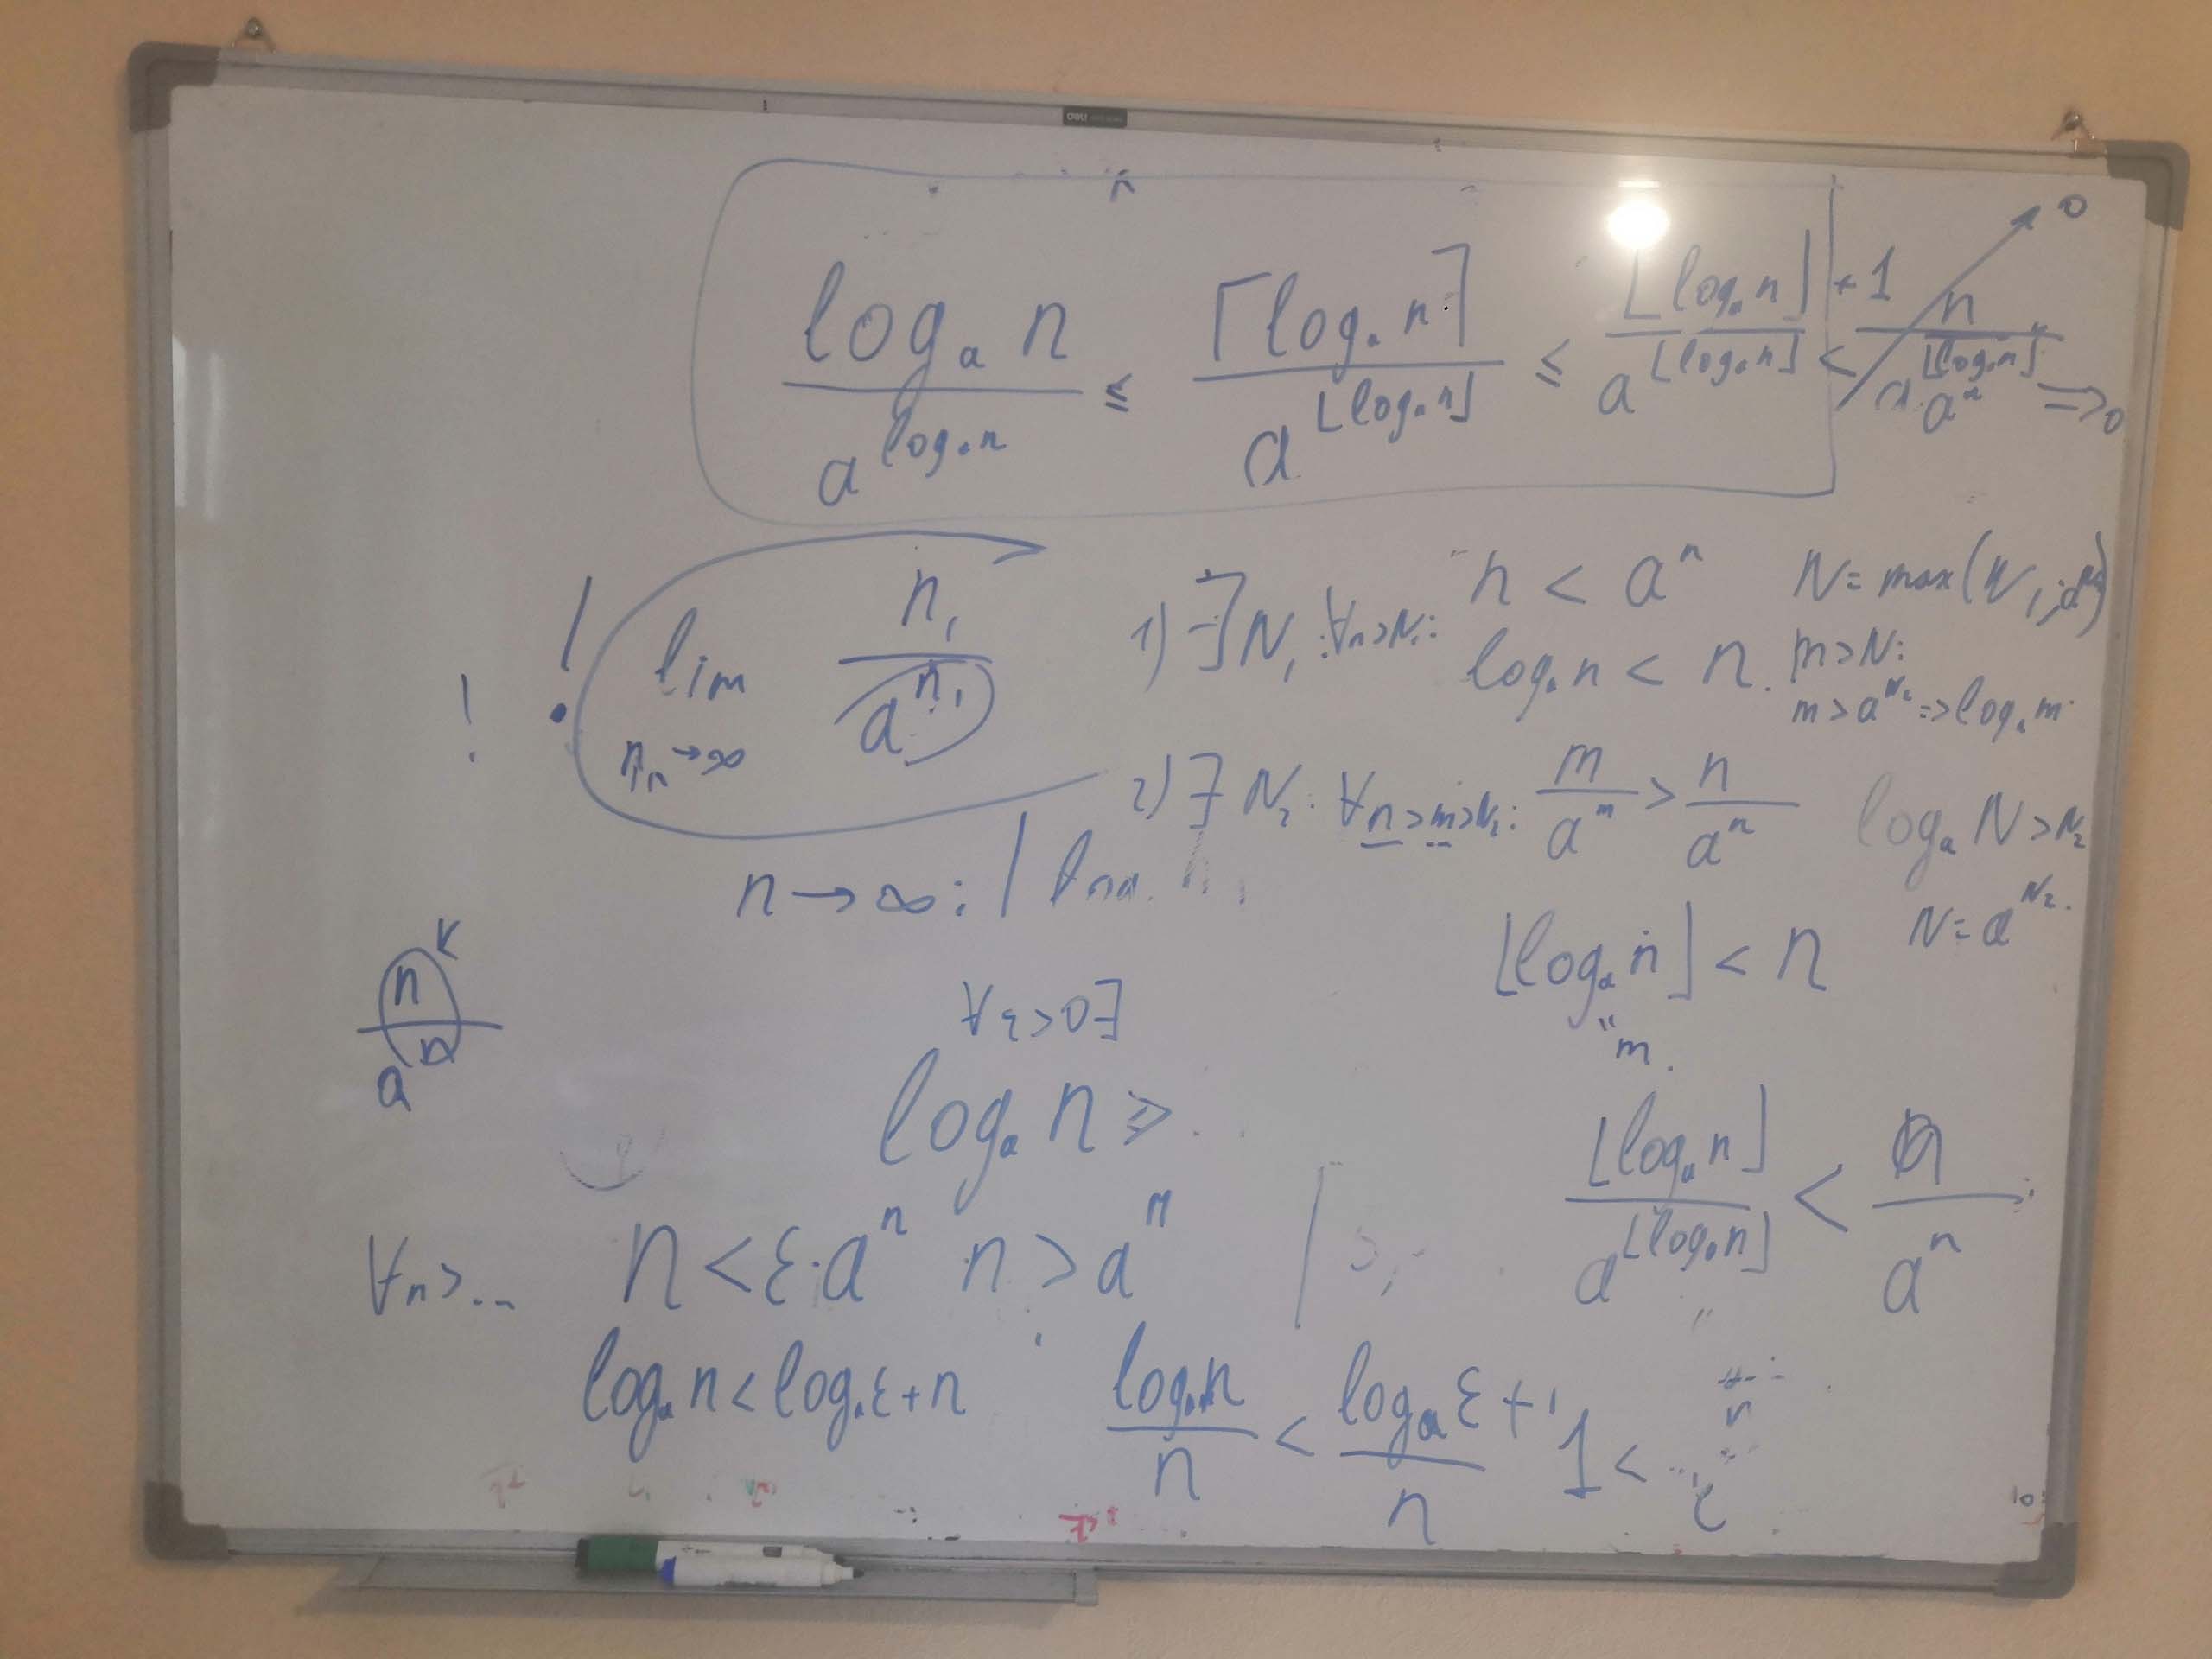 deli
log_a n / a^{log_a n} ≤ ⌈log_a n⌉ / a^{⌊log_a n⌋} ≤ ⌊log_a n⌋ + 1 / a^{⌊log_a n⌋} < n / a^{⌊log_a n⌋} a^n => 0
0
! ! lim_{n_1 → ∞} n_1 / a^{n_1}
1) ∃ N_1 : ∀n>N_1: n < a^n
log_a n < n.
N = max(N_1; a^{N_2})
m > N:
m > a^{N_2} => log_a m
2) ∃ N_2 : ∀n>m>N_2: m / a^m > n / a^n
log_a N > N_2
N = a^{N_2}.
n → ∞ :
⌊log_a n⌋ < n
" m.
n^k / a^n
∀ε>0 ∃
log_a n ≥
⌊log_a n⌋ / a^{⌊log_a n⌋} < n / a^n
∀n>... n < ε·a^n n > a^n
log_a n < log_a ε + n
log_a n / n < log_a ε / n + 1 <